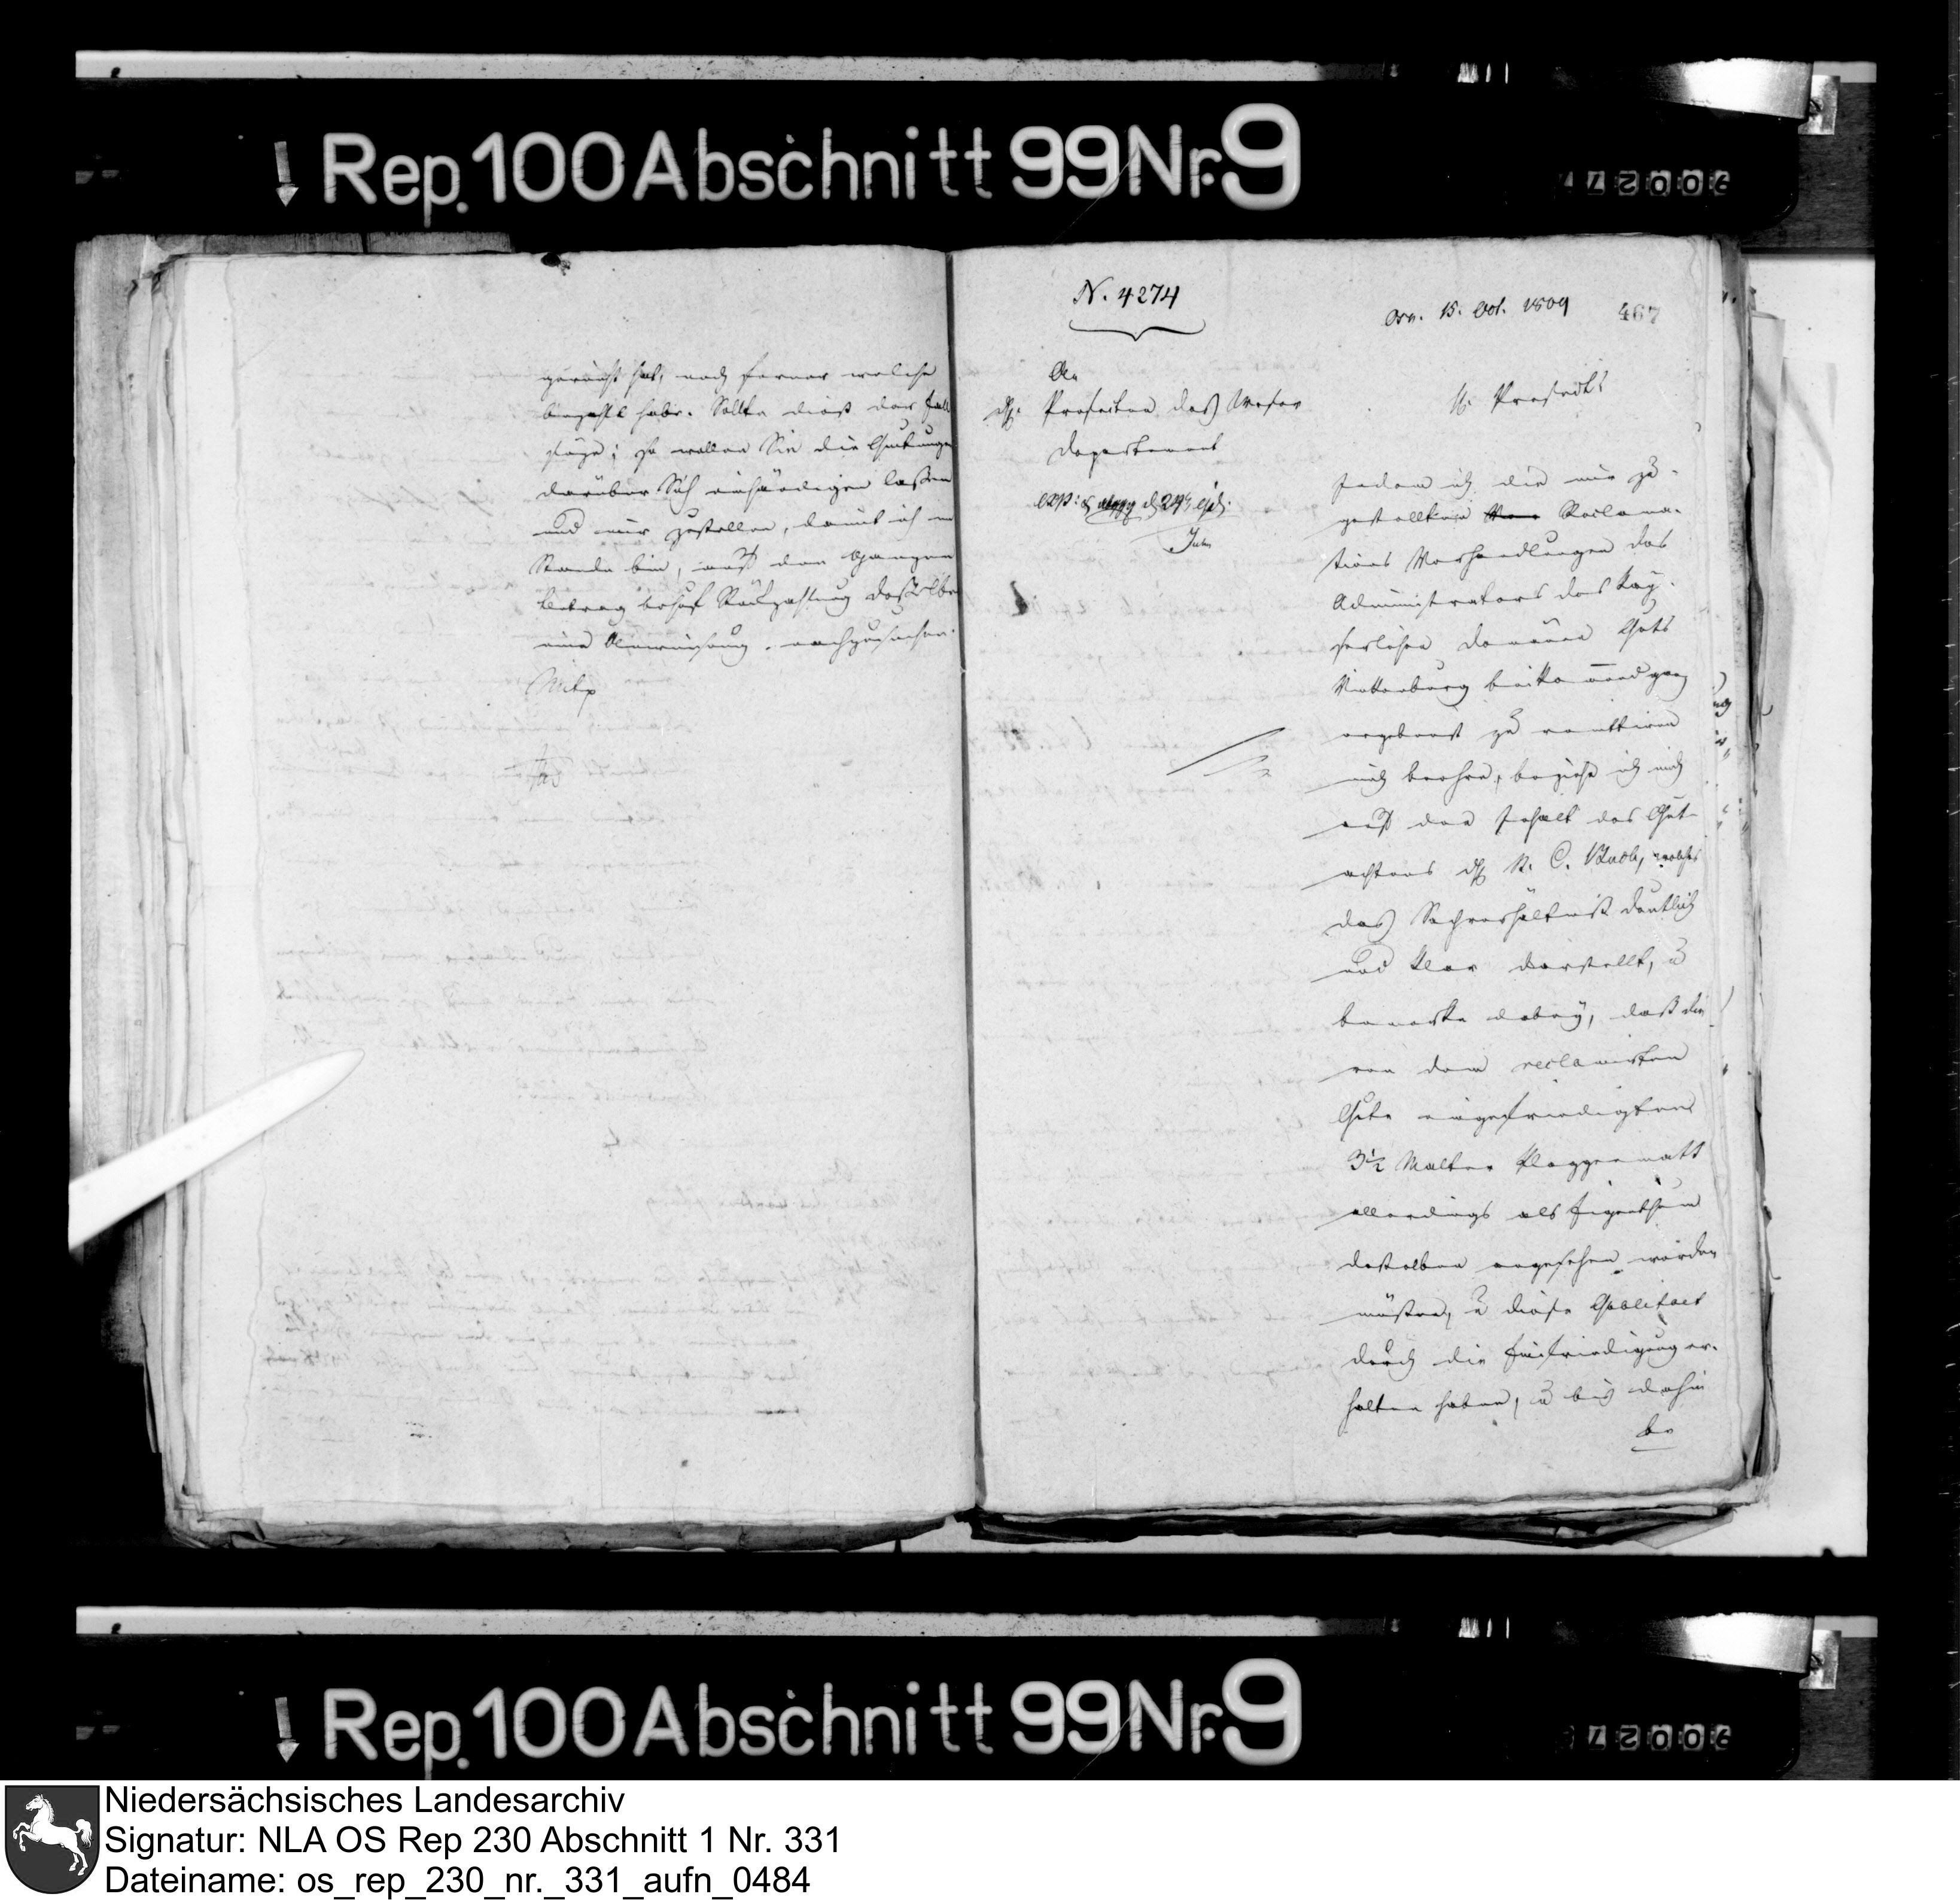 Rep. 100 Abschnitt 99 Nr. 9
gemacht hat, noch ferner welche
bezahlt habe. Sollte dieß der Fall
seyn; so wollen Sie die Quitungen
darüber Sich einhändigen laßen
und mir zustellen, damit ich im
Stande bin, auf den ganzen
Betrag behuf Rückzahlung deßelben
eine Anweisung nachzusuchen.
N. 4274
Osn. 15. Oct. 1809
467
An
Präfecten des Weser
Departement
H. Präfect
Indem ich die mir zu-
gestellten Reclama-
tions Verhandlungen des
Administrators des Kay-
serlichen Domäne Guts
Vittenburg
ergebenst zu remittiren
mich beehre, beziehe ich mich
auf den Inhalt des Gut-
achtens C. welches
das Sachverhältniß deutlich
und klar darstellt, u
bemerke dabey, daß die
von dem reclamirten
Gute eingefriedigten
3½ Malter Plaggenmatt
allerdings als Eigenthum
deßelben angesehen werden
müßen, u diese Qualitaet
durch die Einfriedigung er-
halten haben, u bis dahin
be
Rep. 100 Abschnitt 99 Nr. 9
Niedersächsisches Landesarchiv
Signatur: NLA OS Rep 230 Abschnitt 1 Nr. 331
Dateiname: os_rep_230_nr._331_aufn_0484